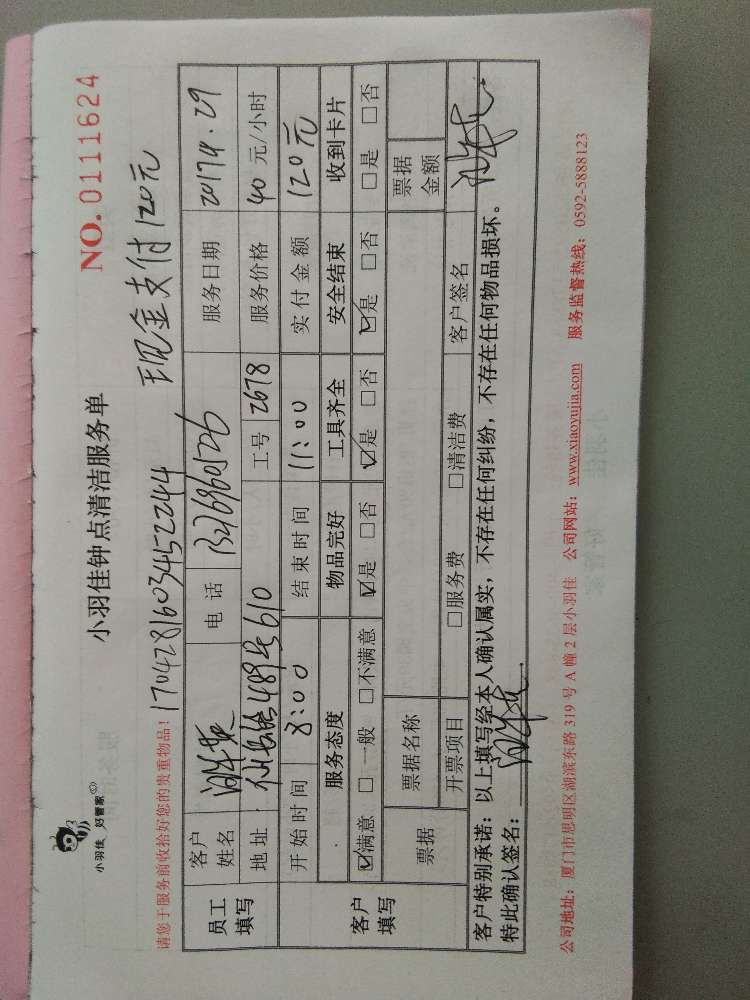 小羽佳 好管家
小羽佳钟点清洁服务单
NO. 0111624
请您于服务前收拾好您的贵重物品!
1704281603452244
现金支付120元
员工填写
客户姓名
电话
服务日期 2017.4.29
地址: 610
工号 2678
服务价格 40 元/小时
客户填写
开始时间 8:00 结束时间 11:00 实付金额 120元
服务态度 物品完好 工具齐全 安全结束 收到卡片
☑满意 □一般 □不满意 ☑是 □否 ☑是 □否 ☑是 □否 □是 □否
票据 票据名称 票据金额
开票项目 □服务费 □清洁费 客户签名
客户特别承诺:以上填写经本人确认属实,不存在任何纠纷,不存在任何物品损坏。
特此确认签名:
公司地址:厦门市思明区湖滨东路 319 号 A 幢 2 层小羽佳 公司网站:www.xiaoyujia.com 服务监督热线:0592-5888123